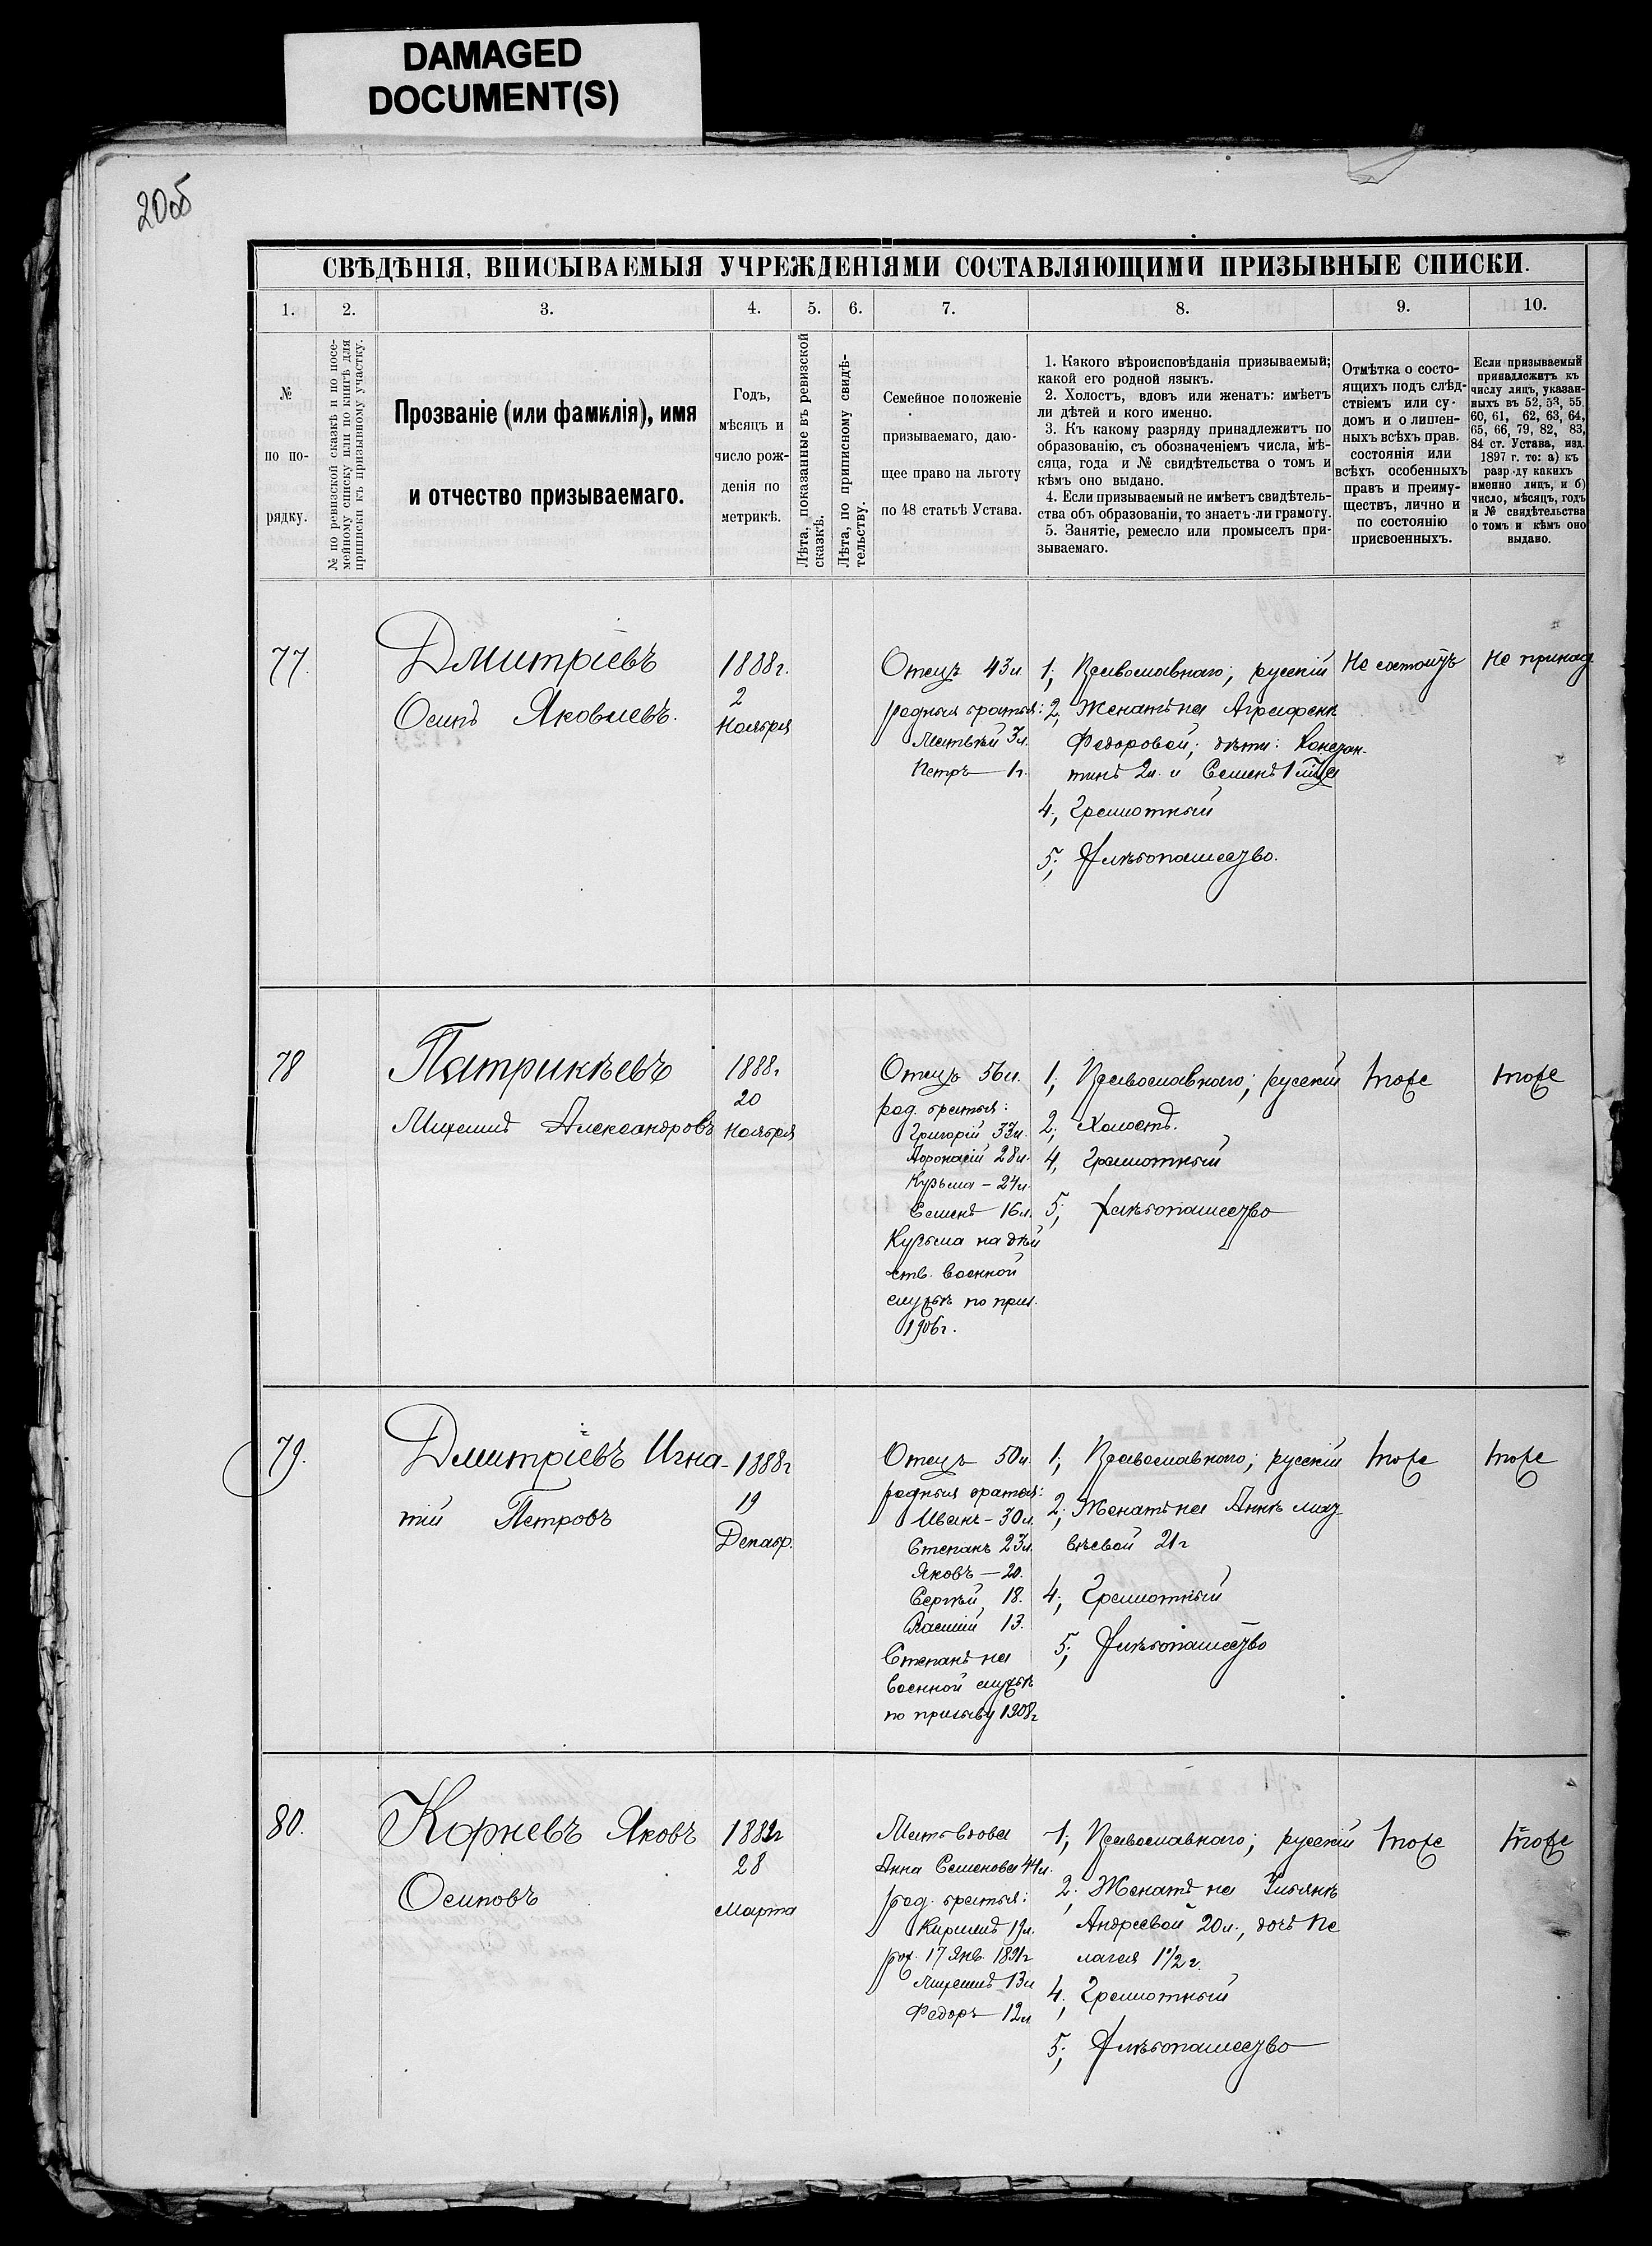 DAMAGED
DOCUMENT(S)
20об
СВѢДѢНІЯ, ВПИСЫВАЕМЫЯ УЧРЕЖДЕНІЯМИ СОСТАВЛЯЮЩИМИ ПРИЗЫВНЫЕ СПИСКИ.
1. 2. 3. 4. 5. 6. 7. 8. 9. 10.
№
по по-
рядку.
№ по ревизской сказкѣ и по посе-
мейному списку или по книгѣ для
приписки къ призывному участку.
Прозваніе (или фамилія), имя
и отчество призываемаго.
Годъ,
мѣсяцъ и
число рож-
денія по
метрикѣ.
Лѣта, показанные въ ревизской
сказкѣ.
Лѣта, по приписному свидѣ-
тельству.
Семейное положеніе
призываемаго, даю-
щее право на льготу
по 48 статьѣ Устава.
1. Какого вѣроисповѣданія призываемый;
какой его родной языкъ.
2. Холостъ, вдовъ или женатъ: имѣетъ
ли дѣтей и кого именно.
3. Къ какому разряду принадлежитъ по
образованію, съ обозначеніемъ числа, мѣ-
сяца, года и № свидѣтельства о томъ и
кѣмъ оно выдано.
4. Если призываемый не имѣетъ свидѣтель-
ства объ образованіи, то знаетъ-ли грамоту.
5. Занятіе, ремесло или промыселъ при-
зываемаго.
Отмѣтка о состо-
ящихъ подъ слѣд-
ствіемъ или су-
домъ и о лишен-
ныхъ всѣхъ прав.
состоянія или
всѣхъ особенныхъ
правъ и преиму-
ществъ, лично и
по состоянію
присвоенныхъ.
Если призываемый
принадлежитъ къ
числу лицъ, указан-
ныхъ въ 52, 53, 55,
60, 61, 62, 63, 64,
65, 66, 79, 82, 83,
84 ст. Устава, изд.
1897 г. то: а) къ
разр ду какихъ
именно лицъ, и б)
число, мѣсяцъ, годъ
и № свидѣтельства
о томъ и кѣмъ оно
выдано.
77.
Дмитріевъ
Осипъ Яковлевъ.
1888г.
2
Ноября
Отецъ 43л.
родныя братья:
Матвѣй 3л.
Петръ — 1г.
1; Православнаго; русскій
2; Женатъ на Аграфенѣ
Федоровой; дѣти: Констан-
тинъ 2л. и Семенъ 1 мѣс
4; Грамотный
5; Хлѣбопашество.
Не состоитъ
Не принад.
78
Патрикѣевъ
Михаилъ Александровъ
1888г
20
Ноября
Отецъ 56л.
род. братья:
Григорій 33л.
Афонасій 28л.
Кузьма — 24л.
Семенъ 16л.
Кузьма на дѣй
ств. военной
службѣ по приз.
1906г.
1; Православнаго; русскій
2; Холостъ.
4; Грамотный
5; Хлѣбопашество
тоже
тоже
79.
Дмитріевъ Игна-
тій Петровъ
1888г
19
Декабр.
Отецъ 50л.
родныя братья:
Иванъ — 30л.
Степанъ 23л.
Яковъ — 20.
Сергѣй 18.
13.
Степанъ на
военной службѣ
по призыву 1908г
1; Православнаго; русскій
2; Женатъ на Аннѣ Мат-
вѣевой 21г
4; Грамотный
5; Хлѣбопашество
тоже
тоже
80.
Корневъ Яковъ
Осиповъ
28
Марта
Мать вдова
Анна Семенова 44л.
род. братья:
Кирилъ 19л.
рож. 17 Янв. 1891г
Михаилъ 13л
Федоръ — 12л
1; Православнаго; русскій
2; Женатъ на Ульянѣ
Андреевой 20л., дочь Пе
лагея 1 1/2 г.
4; Грамотный
5; Хлѣбопашество
тоже
тоже